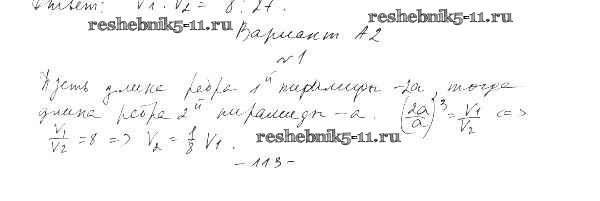 Ответ: V1 : V2 = 8 : 27.
reshebnik5-11.ru reshebnik5-11.ru
Вариант А2
№1
Пусть длина ребра 1й пирамиды – 2a, тогда
длина ребра 2й пирамиды – a. (2a/a)^3 = V1/V2 <=>
V1/V2 = 8 => V2 = 1/8 V1. reshebnik5-11.ru
– 113 –